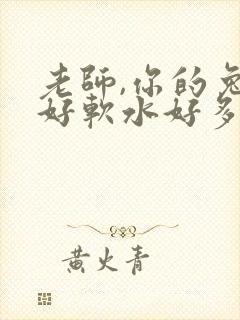 老師,你的兔
好軟水好多
黄火青